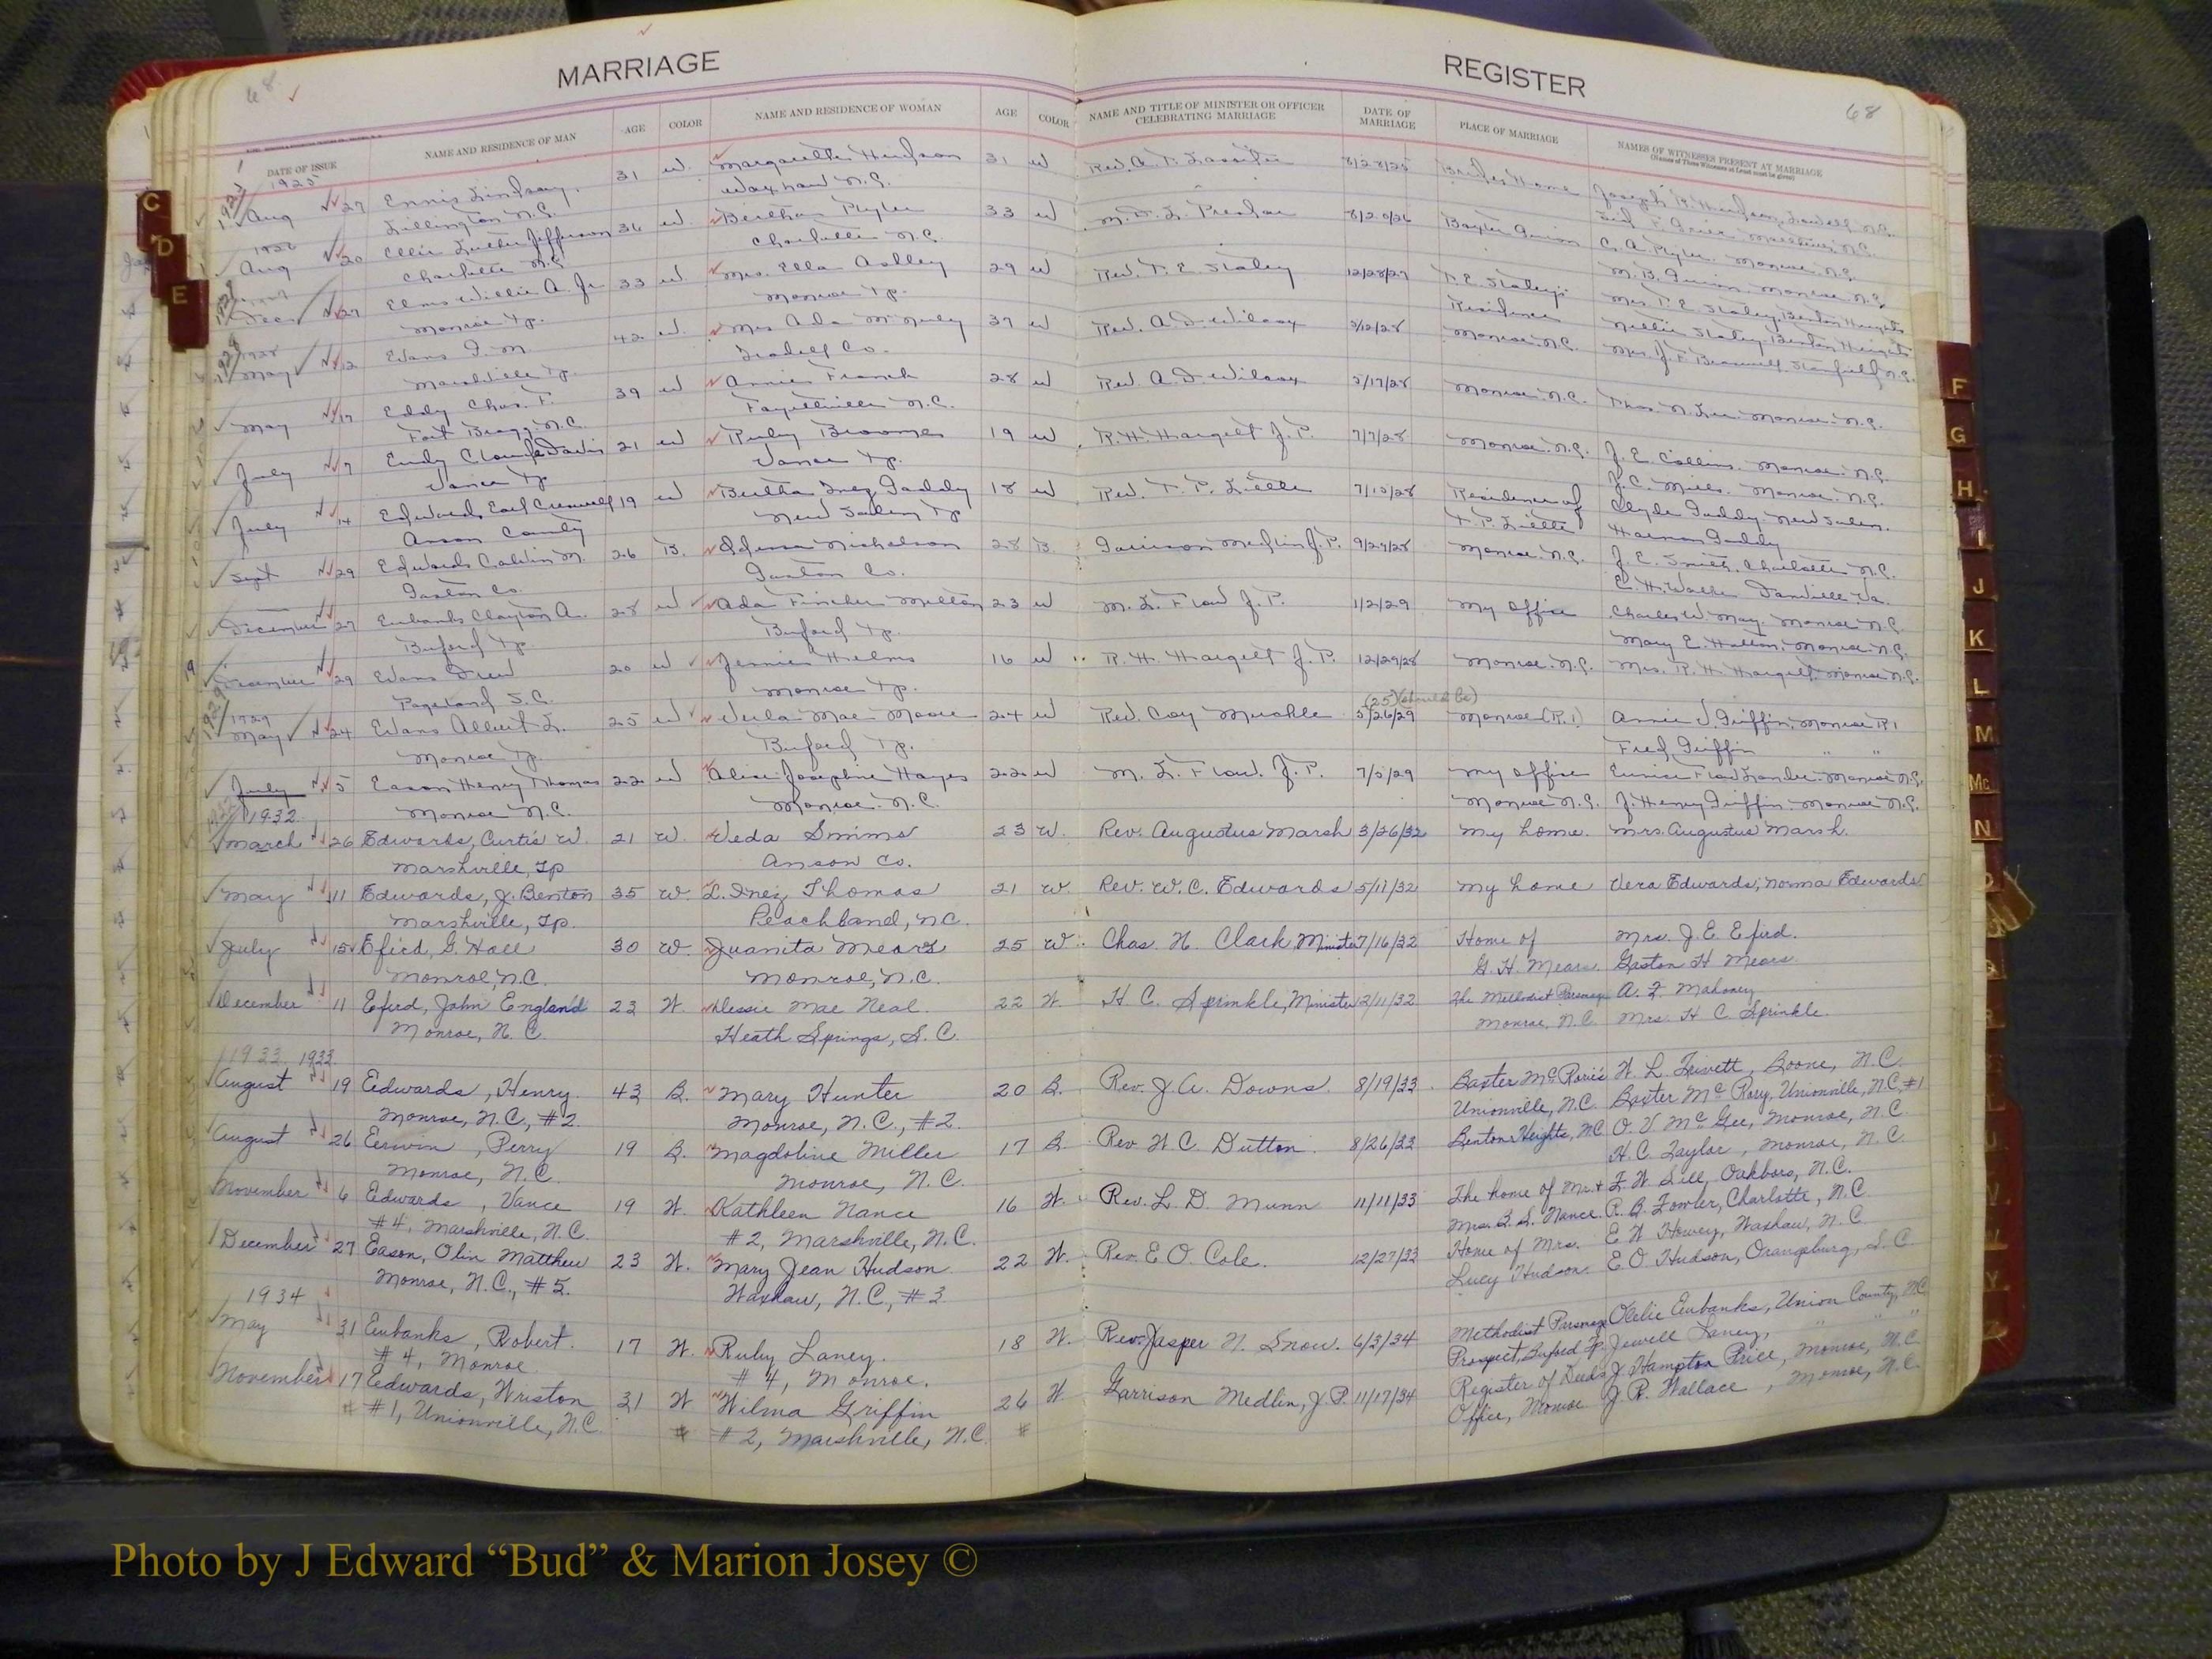 MARRIAGE REGISTER
68 68
DATE OF ISSUE NAME AND RESIDENCE OF MAN AGE COLOR NAME AND RESIDENCE OF WOMAN AGE COLOR NAME AND TITLE OF MINISTER OR OFFICER CELEBRATING MARRIAGE DATE OF MARRIAGE PLACE OF MARRIAGE NAMES OF WITNESSES PRESENT AT MARRIAGE
1925
Aug 27 Ennis Lindsay. 31 W. Margarette Hudson 31 W Rev. A. T. Lassiter 8/28/25 Brides Home Joseph R. Hudson, Lowell N.C.
Lillington N.C. Waxhaw N.C.
1926
Aug 20 Ellis Luther Jefferson 36 W. Bertha Plyler 33 W M. D. L. Preslar 8/20/26 C. A. Plyler. Monroe N.C.
Charlotte N.C. Charlotte N.C. Monroe N.C.
Dec 27 Elms Willie A. Jr 33 W. Mrs. Ella Ashley 29 W Rev. T. E. Staley 12/28/27 T. E. Staley's Mrs. T. E. Staley, Benton Heights
Monroe Tp. Monroe Tp. Residence Nellie Staley Benton Heights
1928
May 12 Evans I. M. 42 W. Mrs Ada McNeely 37 W Rev. A. D. Wilcox 5/12/28 Monroe N.C. Mrs. J. F. Stanfield N.C.
Marshville Tp. Iredell Co.
May 17 Eddy Chas. F. 39 W Annie French 28 W Rev. A. D. Wilcox 5/17/28 Monroe N.C. Thos. N. Lee. Monroe N.C.
Fort Bragg N.C. Fayetteville N.C.
July 7 Eudy Claude Davis 21 W Ruby Broome 19 W R. H. Hargett J. P. 7/7/28 Monroe. N.C. J. E. Collins. Monroe. N.C.
Vance Tp Vance Tp. J. C. Mills. Monroe N.C.
July 14 Edwards Earl 19 W Bertha Inez Gaddy 18 W Rev. T. P. Little 7/15/28 Residence of Clyde Gaddy New Salem.
Anson County New Salem Tp T. P. Little Gaddy
Sept 29 Edwards Calvin M. 26 B. Nicholson 28 B Garrison Medlin J. P. 9/29/28 Monroe N.C. J. E. Smith, Charlotte N.C.
Gaston Co. Gaston Co. E. H. Danville Va.
December 27 Eubanks Clayton A. 28 W Ada Fincher Melton 23 W M. L. Flow J. P. 1/2/29 My office Charles W. May, Monroe N.C.
Buford Tp. Buford Tp. Mary E. Monroe N.C.
December 29 Evans Drew 20 W Jennie Helms 16 W R. H. Hargett J. P. 12/29/28 Monroe. N.C. Mrs. R. H. Hargett, Monroe N.C.
Pageland S.C. Monroe Tp. (25) (should be)
1929
May 24 Evans Albert L. 25 W Verla Mae Moore 24 W Rev. Coy Muckle 5/26/29 Monroe (R.1) Annie J. Griffin, Monroe R1
Monroe Tp. Buford Tp. Fred Griffin " "
July 5 Eason Henry Thomas 22 W Alice Josephine Hayes 22 W M. L. Flow. J. P. 7/5/29 My office Eunice Flow Monroe N.C.
Monroe N.C. Monroe. N.C. Monroe N.C. J. Henry Griffin Monroe N.C.
1932
March 26 Edwards, Curtis W. 21 W. Veda Simms 23 W. Rev. Augustus Marsh 3/26/32 My home. Mrs. Augustus Marsh.
Marshville, Tp Anson Co.
May 11 Edwards, J. Benton 35 W. L. Inez Thomas 21 W. Rev. W. C. Edwards 5/11/32 My home Vera Edwards; Norma Edwards
Marshville, Tp. Peachland, N.C.
July 15 Efird, G. Hall 30 W. Juanita Mears 25 W. Chas. H. Clark Minister 7/16/32 Home of Mrs. J. E. Efird.
Monroe, N.C. Monroe, N.C. G. H. Mears. Gaston H Mears.
December 11 Efird, John England 23 W. Dessie Mae Neal. 22 W. H. C. Sprinkle, Minister 12/11/32 The Methodist Parsonage A. F. Mahoney
Monroe, N. C. Heath Springs, S. C. Monroe, N.C. Mrs. H. C. Sprinkle.
1933 1933
August 19 Edwards, Henry. 43 B. Mary Hunter 20 B. Rev. J. A. Downs. 8/19/33 Baxter McRorie's W. L. Trivett, Boone, N.C.
Monroe, N.C, #2. Monroe, N.C., #2. Unionville, N.C. Baxter McRory, Unionville, N.C. #1
August 26 Eerwin, Perry 19 B. Magdoline Miller 17 B. Rev. W. C. Dutton. 8/26/33 Benton Heights, N.C O. V. McGee, Monroe, N.C.
Monroe, N.C. Monroe, N.C. H. C. Taylor, Monroe, N. C.
November 6 Edwards, Vance 19 W. Kathleen Nance 16 W. Rev. L. D. Munn 11/11/33 The home of Mr. & F. W. Sill, Oakboro, N.C.
#4, Marshville, N.C. #2, Marshville, N.C. Mrs. B. S. Nance. R. B. Fowler, Charlotte, N. C.
December 27 Eason, Olin Matthew 23 W. Mary Jean Hudson 22 W. Rev. E. O. Cole. 12/27/33 Home of Mrs. E W Howey, Waxhaw, N. C
Monroe, N.C., #5. Waxhaw, N.C., #3 Lucy Hudson. E O Hudson, Orangeburg, S.C
1934
May 31 Eubanks, Robert. 17 W. Ruby Laney. 18 W. Rev. Jasper N. Snow. 6/3/34 Methodist Parsonage Eubanks, Union County, N.C
#4, Monroe. #4, Monroe. Prospect, Buford Tp. Jewell Laney, " "
November 17 Edwards, Wriston 31 W Wilma Griffin 26 W Garrison Medlin, J.P. 11/17/34 Register of Deeds J. Hampton Price, Monroe, N.C
# #1, Unionville, N.C. # #2, Marshville, N.C. # Office, Monroe J. R. Wallace, Monroe, N.C.
C
D
E
F
G
H
I
J
K
L
M
Mc
N
Photo by J Edward “Bud” & Marion Josey ©